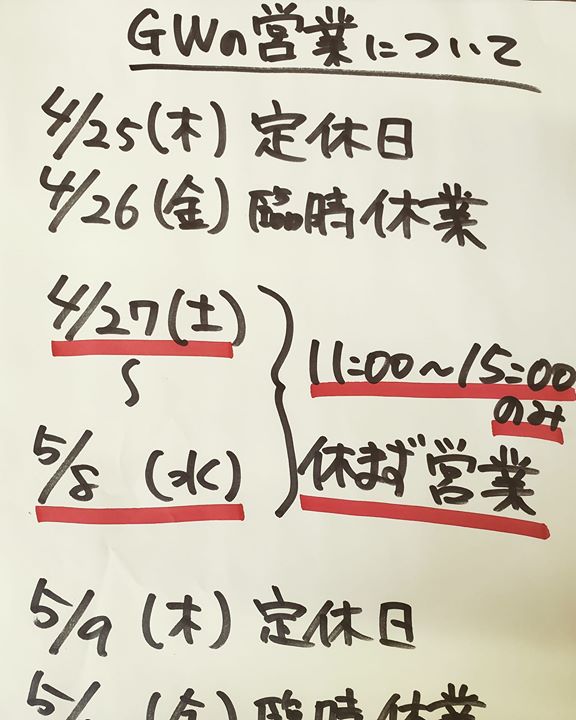 GWの営業について
4/25(木) 定休日
4/26(金) 臨時休業
4/27(土)
〜
5/8 (水)
11:00〜15:00
のみ
休まず営業
5/9 (木) 定休日
(金) 臨時休業